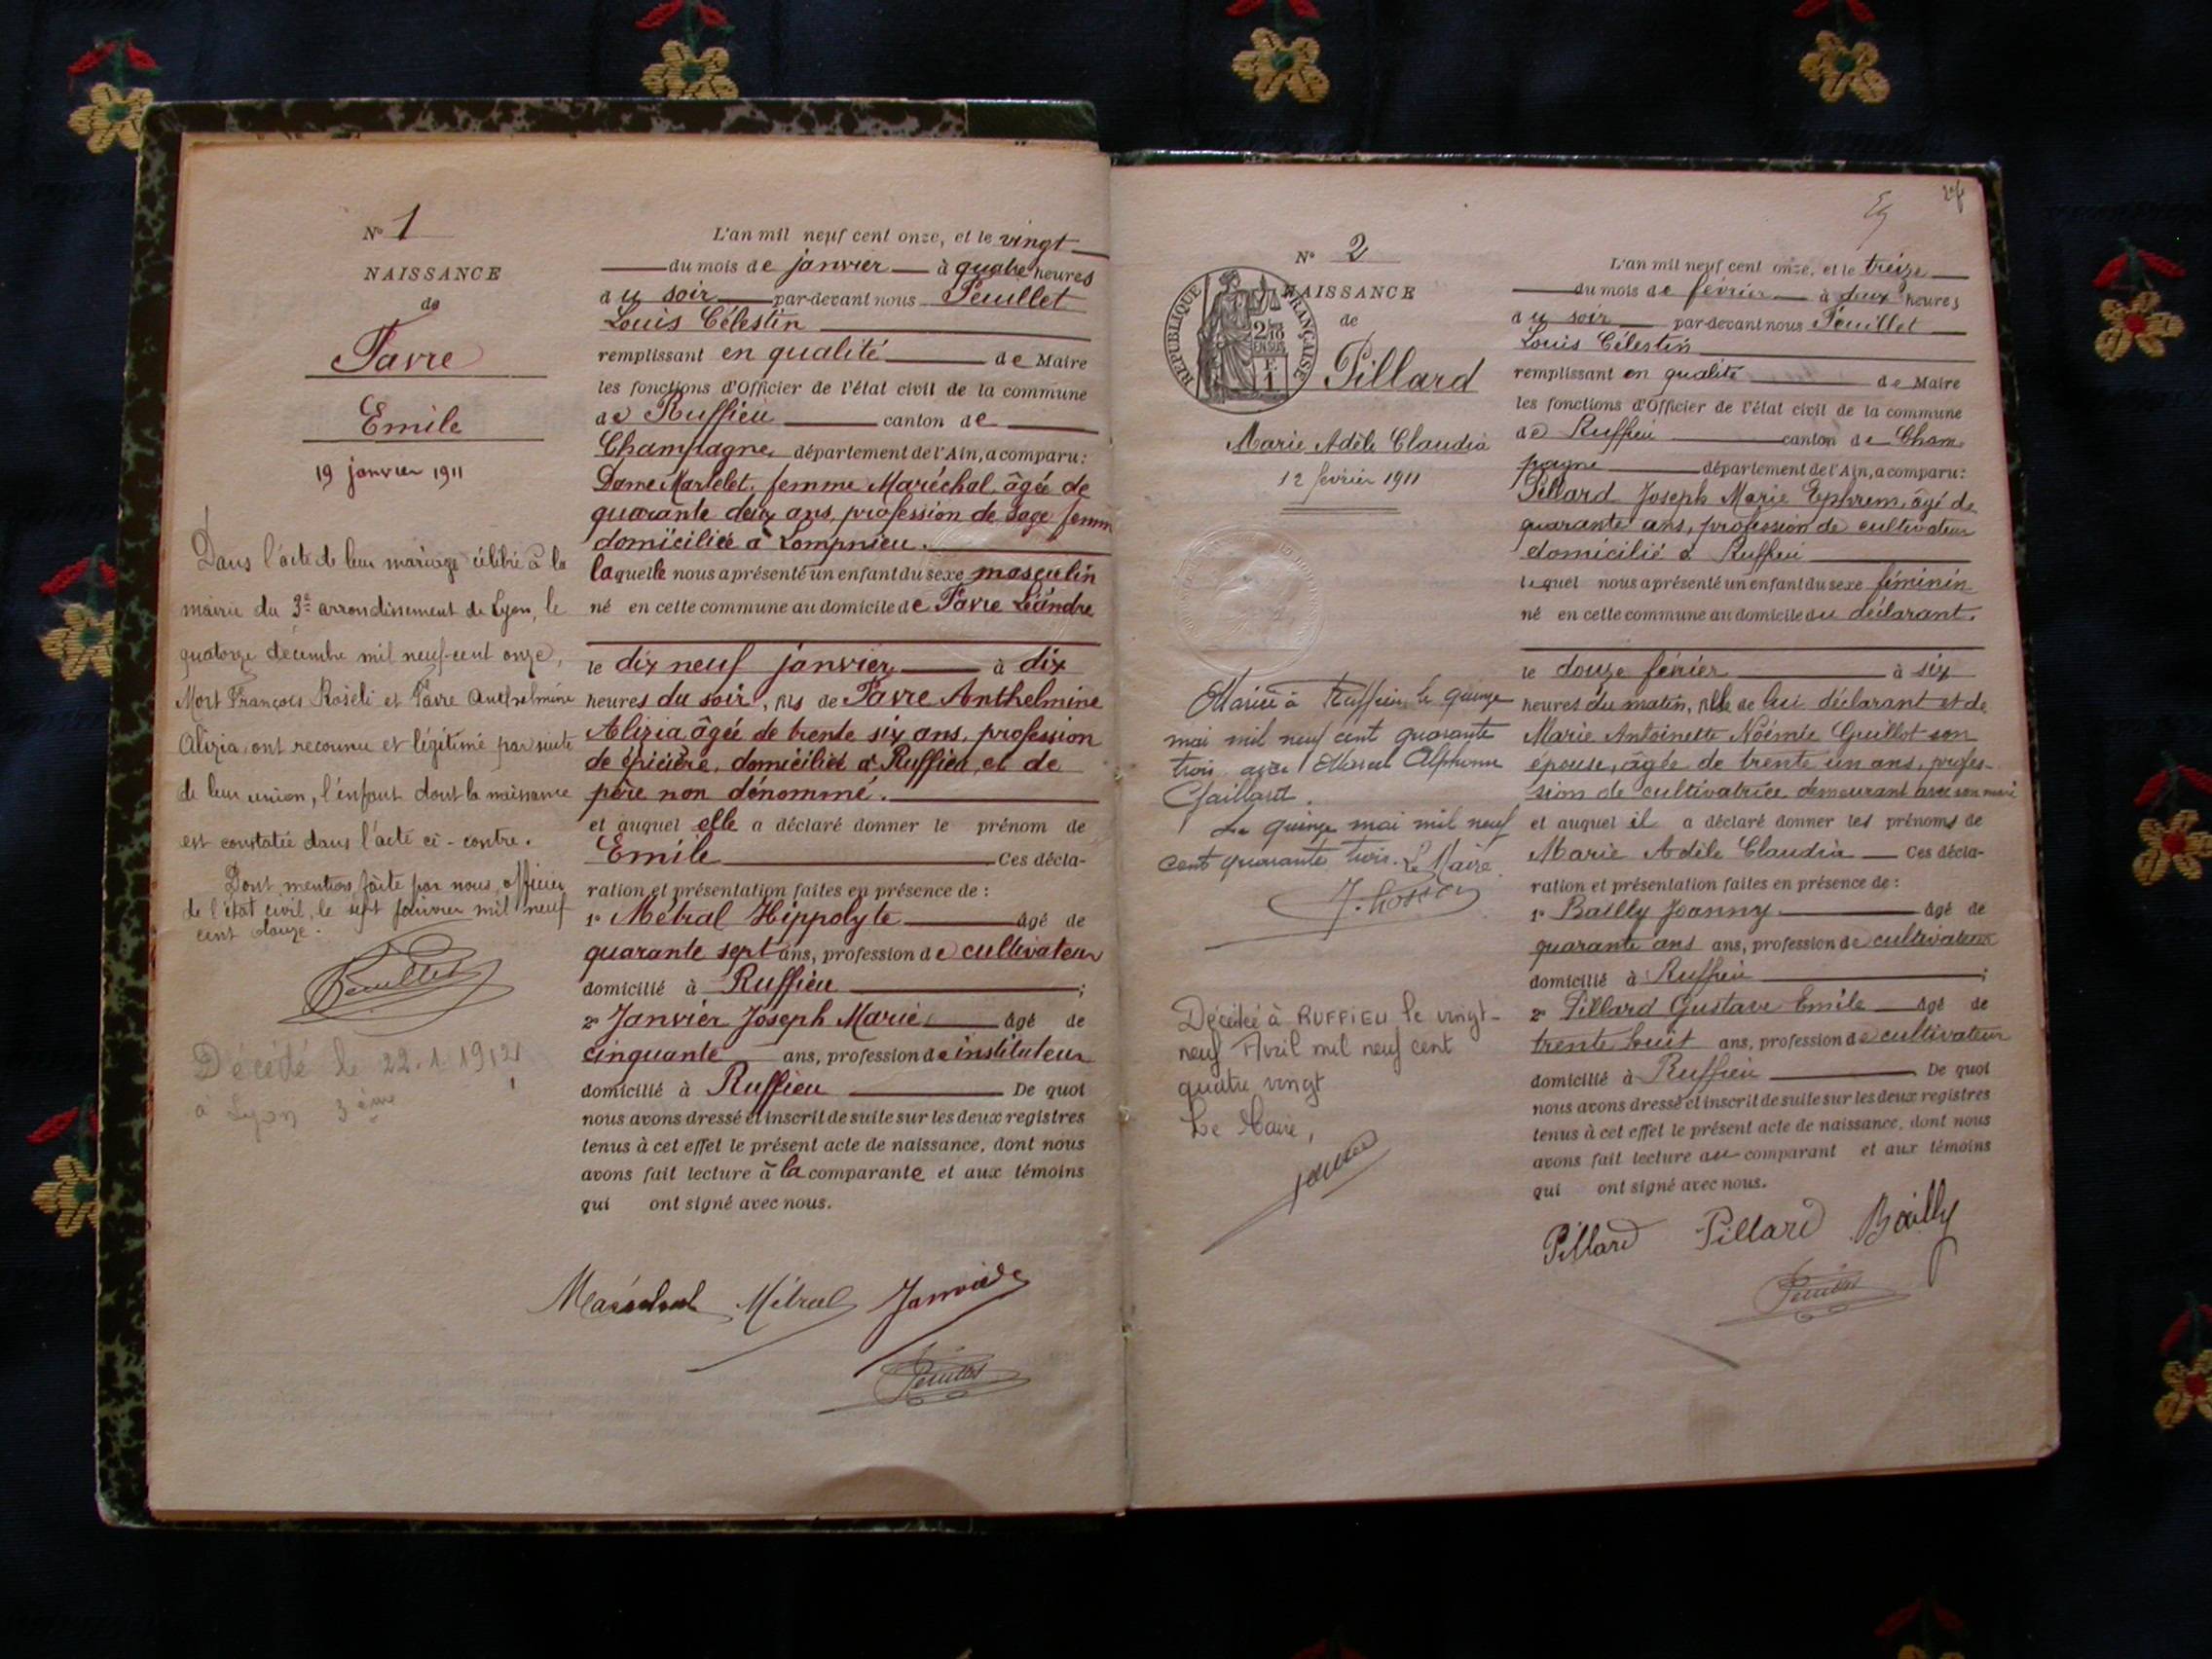 N° 1
NAISSANCE
de
Favre
Emile
19 janvier 1911
Dans l'acte de leur mariage célébré à la
mairie du 3e arrondissement de Lyon, le
quatorze décembre mil neuf-cent onze,
Mort François Roseli et Favre Anthelmine
Alizia ont reconnu et légitimé par suite
de leur union, l'enfant dont la naissance
est constatée dans l'acte ci-contre.
Dont mention faite par nous, officier
de l'état civil, le sept janvier mil neuf
cent douze.
Peuillet
Décédé le 22.1.1912
à Lyon 3ème
L'an mil neuf cent onze, et le vingt
du mois de janvier à quatre heures
du soir par-devant nous Peuillet
Louis Célestin
remplissant en qualité de Maire
les fonctions d'Officier de l'état civil de la commune
de Ruffieu canton de
Champagne, département de l'Ain, a comparu :
Dame Martelet, femme Maréchal, âgée de
quarante deux ans, profession de sage femm
domiciliée à Lompnieu.
laquelle nous a présenté un enfant du sexe masculin
né en cette commune au domicile de Favre Léandre
le dix neuf janvier à dix
heures du soir, fils de Favre Anthelmine
Alizia âgée de trente six ans, profession
de épicière, domiciliée à Ruffieu, et de
père non dénommé.
et auquel elle a déclaré donner le prénom de
Emile Ces décla-
ration et présentation faites en présence de :
1° Métral Hippolyte âgé de
quarante sept ans, profession de cultivateur
domicilié à Ruffieu ;
2° Janvier Joseph Marie âgé de
cinquante ans, profession de instituteur
domicilié à Ruffieu De quoi
nous avons dressé et inscrit de suite sur les deux registres
tenus à cet effet le présent acte de naissance, dont nous
avons fait lecture à la comparante et aux témoins
qui ont signé avec nous.
Maréchal Métral Janvier
Peuillet
N° 2
NAISSANCE
de
REPUBLIQUE FRANÇAISE
2/10 EN SUS
F. 1
Pillard
Marie Adèle Claudia
12 février 1911
Mariée à Ruffieu le quinze
mai mil neuf cent quarante
trois avec Marcel Alphonse
Gaillard.
Le quinze mai mil neuf
cent quarante trois. Le Maire.
Décédée à RUFFIEU le vingt-
neuf Avril mil neuf cent
quatre vingt
Le Maire,
L'an mil neuf cent onze, et le treize
du mois de février à deux heures
du soir par-devant nous Peuillet
Louis Célestin
remplissant en qualité de Maire
les fonctions d'Officier de l'état civil de la commune
de Ruffieu canton de Cham-
pagne département de l'Ain, a comparu :
Pillard Joseph Marie Ephrem, âgé de
quarante ans, profession de cultivateur
domicilié à Ruffieu
lequel nous a présenté un enfant du sexe féminin
né en cette commune au domicile du déclarant.
le douze février à six
heures du matin, fille de lui déclarant et de
Marie Antoinette Noémie Guillot son
épouse, âgée de trente un ans, profes-
sion de cultivatrice demeurant avec son mari
et auquel il a déclaré donner les prénoms de
Marie Adèle Claudia Ces décla-
ration et présentation faites en présence de :
1° Bailly Joanny. âgé de
quarante ans ans, profession de cultivateur
domicilié à Ruffieu ;
2° Pillard Gustave Emile âgé de
trente huit ans, profession de cultivateur
domicilié à Ruffieu De quoi
nous avons dressé et inscrit de suite sur les deux registres
tenus à cet effet le présent acte de naissance, dont nous
avons fait lecture au comparant et aux témoins
qui ont signé avec nous.
Pillard Pillard Bailly
Peuillet